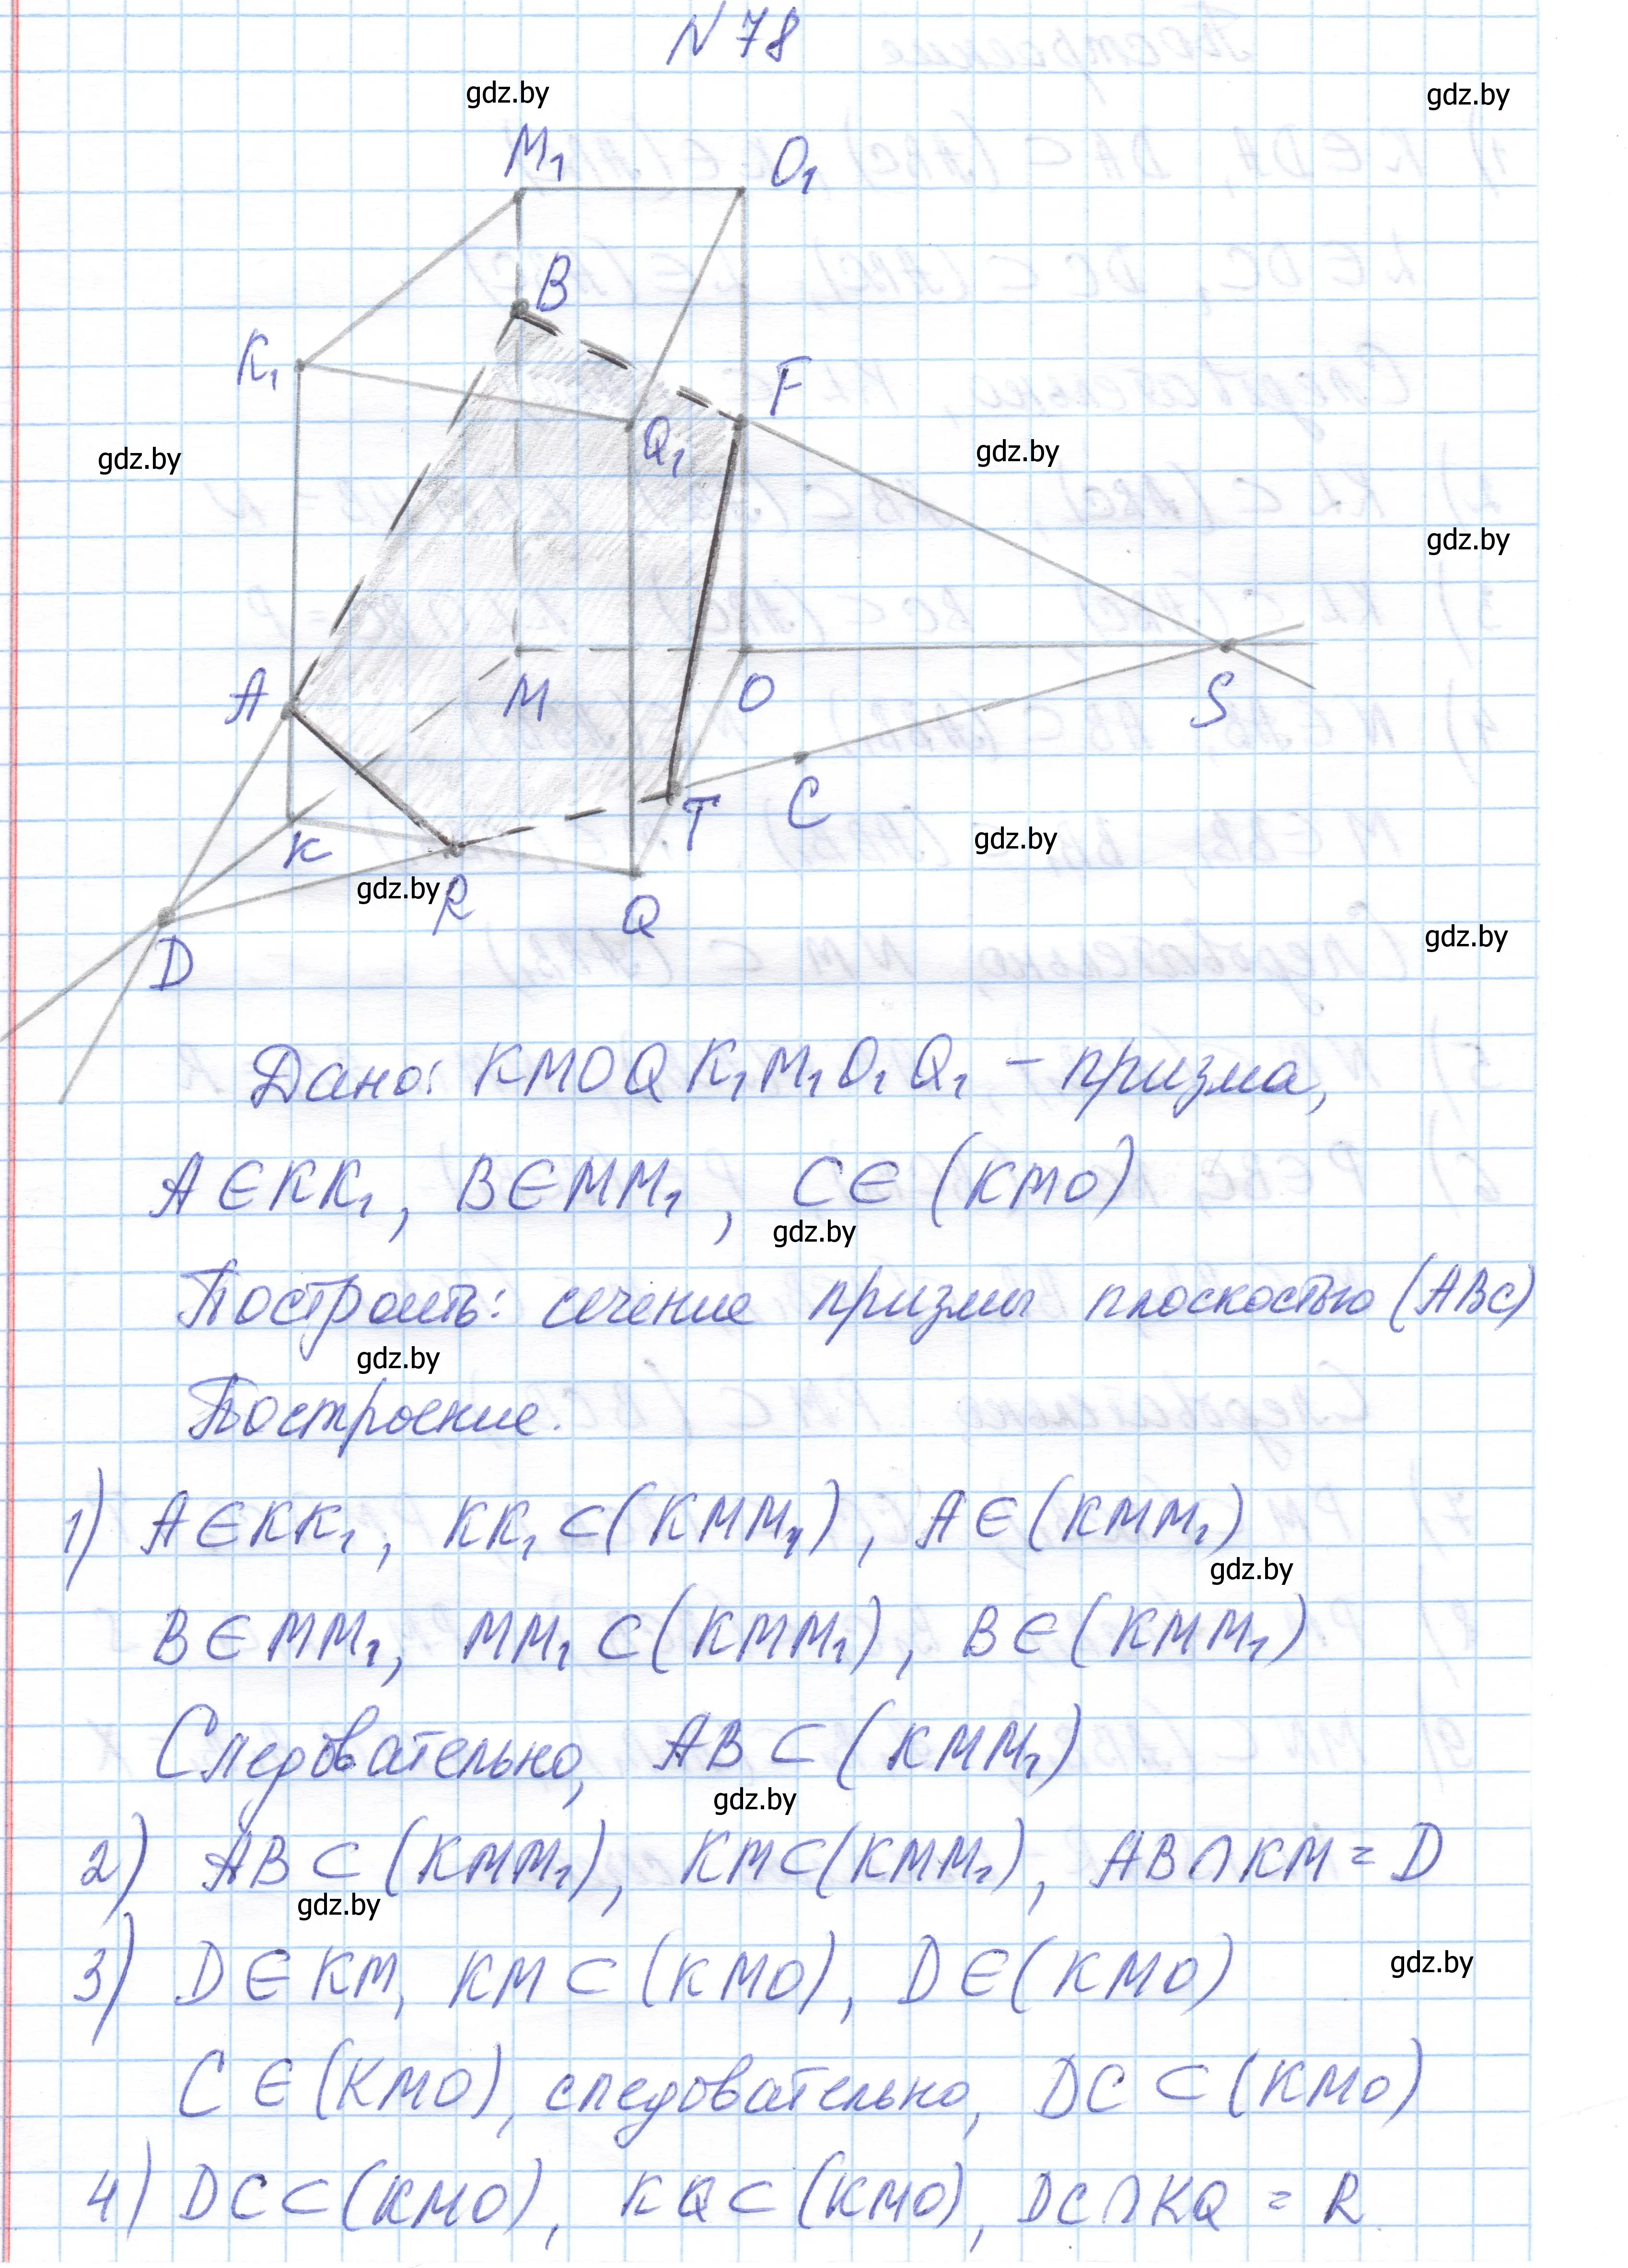 N 78
gdz.by
gdz.by
M₁ O₁
B
K₁ F
Q₁
gdz.by
gdz.by
gdz.by
A M O S
T C
K
gdz.by
gdz.by
R Q
D
gdz.by
Дано: KMOQK₁M₁O₁Q₁ – призма,
A∈KK₁, B∈MM₁, C∈(KMO)
gdz.by
Построить: сечение призмы плоскостью (ABC)
gdz.by
Построение.
1) A∈KK₁, KK₁⊂(KMM₁), A∈(KMM₁)
gdz.by
B∈MM₁, MM₁⊂(KMM₁), B∈(KMM₁)
Следовательно, AB⊂(KMM₁)
gdz.by
2) AB⊂(KMM₁), KM⊂(KMM₁), AB∩KM=D
gdz.by
3) D∈KM, KM⊂(KMO), D∈(KMO)
gdz.by
C∈(KMO), следовательно, DC⊂(KMO)
4) DC⊂(KMO), KQ⊂(KMO), DC∩KQ=R